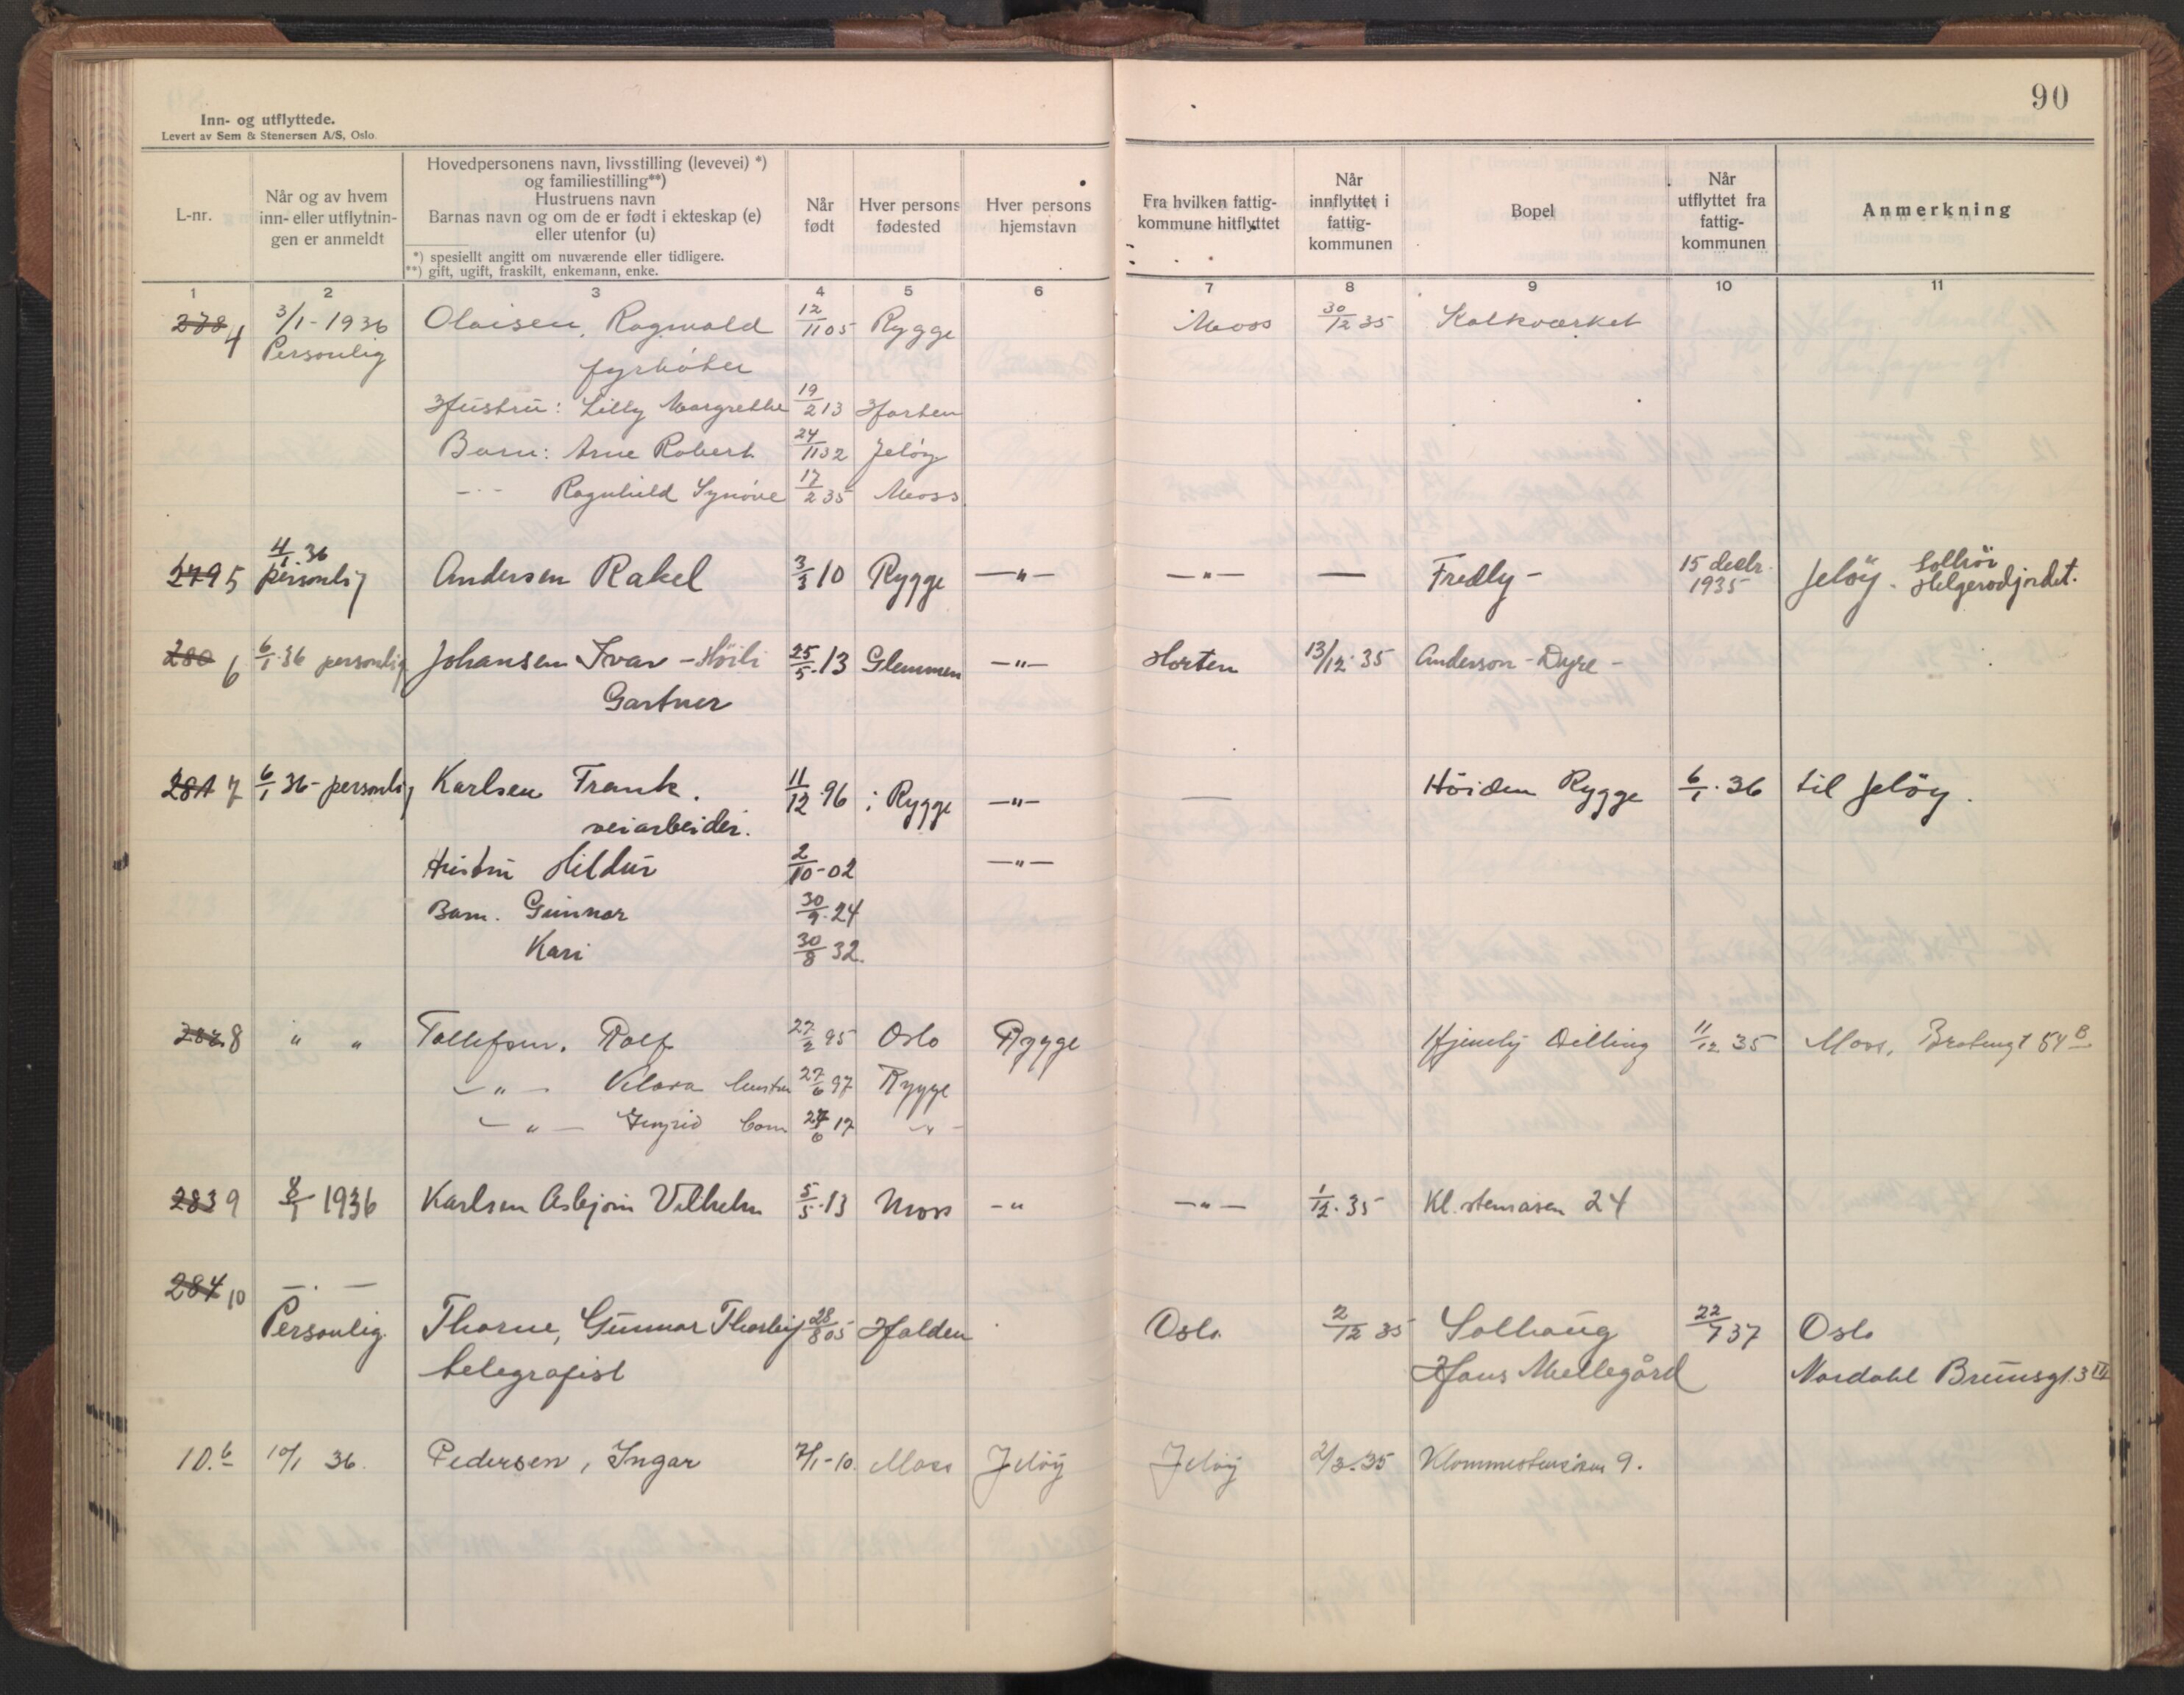 90
Inn- og utflyttede.
Levert av Sem & Stenersen A/S, Oslo.
L-nr.
Når og av hvem
inn- eller utflytnin-
gen er anmeldt
Hovedpersonens navn, livsstilling (levevei) *)
og familiestilling**)
Hustruens navn
Barnas navn og om de er født i ekteskap (e)
eller utenfor (u)
*) spesiellt angitt om nuværende eller tidligere.
**) gift, ugift, fraskilt, enkemann, enke.
Når
født
Hver persons
fødested
Hver persons
hjemstavn
Fra hvilken fattig-
kommune hitflyttet
Når
innflyttet i
fattig-
kommunen
Bopel
Når
utflyttet fra
fattig-
kommunen
Anmerkning
1 2 3 4 5 6 7 8 9 10 11
278 4 3/1-1936 Olaisen, Ragnvald 12/11 05 Rygge Moss 30/12 35 Kalkværket
Personlig
fyrbøter
Hustru: Lilly Margrethe 19/2 13 Horten
Barn: Arne Robert 24/11 32 Jeløy
-"- Ragnhild Synøve 17/2 35 Moss
279 5 4/1.36 personlig Andersen Rakel 3/3 10 Rygge —"— —"— — Fredly - 15 decbr. 1935 Jeløy - Solbrör Helgerødjordet.
280 6 6/1.36 personlig Johansen Ivar - Höili 25/5.13 Glemmen —"— Horten 13/12.35 Anderson - Dyre -
Gartner
281 7 6/1 36 - personlig Karlsen Frank. 11/12.96 i Rygge —"— — Höiden Rygge 6/1.36 til Jeløy.
veiarbeider.
Hustru Hildur 2/10-02 —"—
Barn. Gunnar 30/9.24
Kari 30/8 32.
282 8 " " Tollefsen, Rolf 27/2 95 Oslo Rygge Hjemly Dilling 11/12 35 Moss, Bråtengt 54 B
—"— hustru 27/6 97 Rygge
—"— Ingrid barn 27/6 17 —"—
283 9 8/1 1936 Karlsen Asbjørn Vilhelm 5/5.13 Moss -" —"— 1/12.35 Kl. stensåsen 24
284 10 —.—
Personlig. Thorne, Gunnar Thorbj 28/8 05 Halden Oslo 2/12 35 Solhaug 22/7 37 Oslo
telegrafist Hans Mellegård Nordahl Brunsgt. 3 III
10.b 10/1 36. Pedersen, Ingar 7/1-10. Moss Jeløy Jeløy 2/3.35 Klommestensåsen 9.